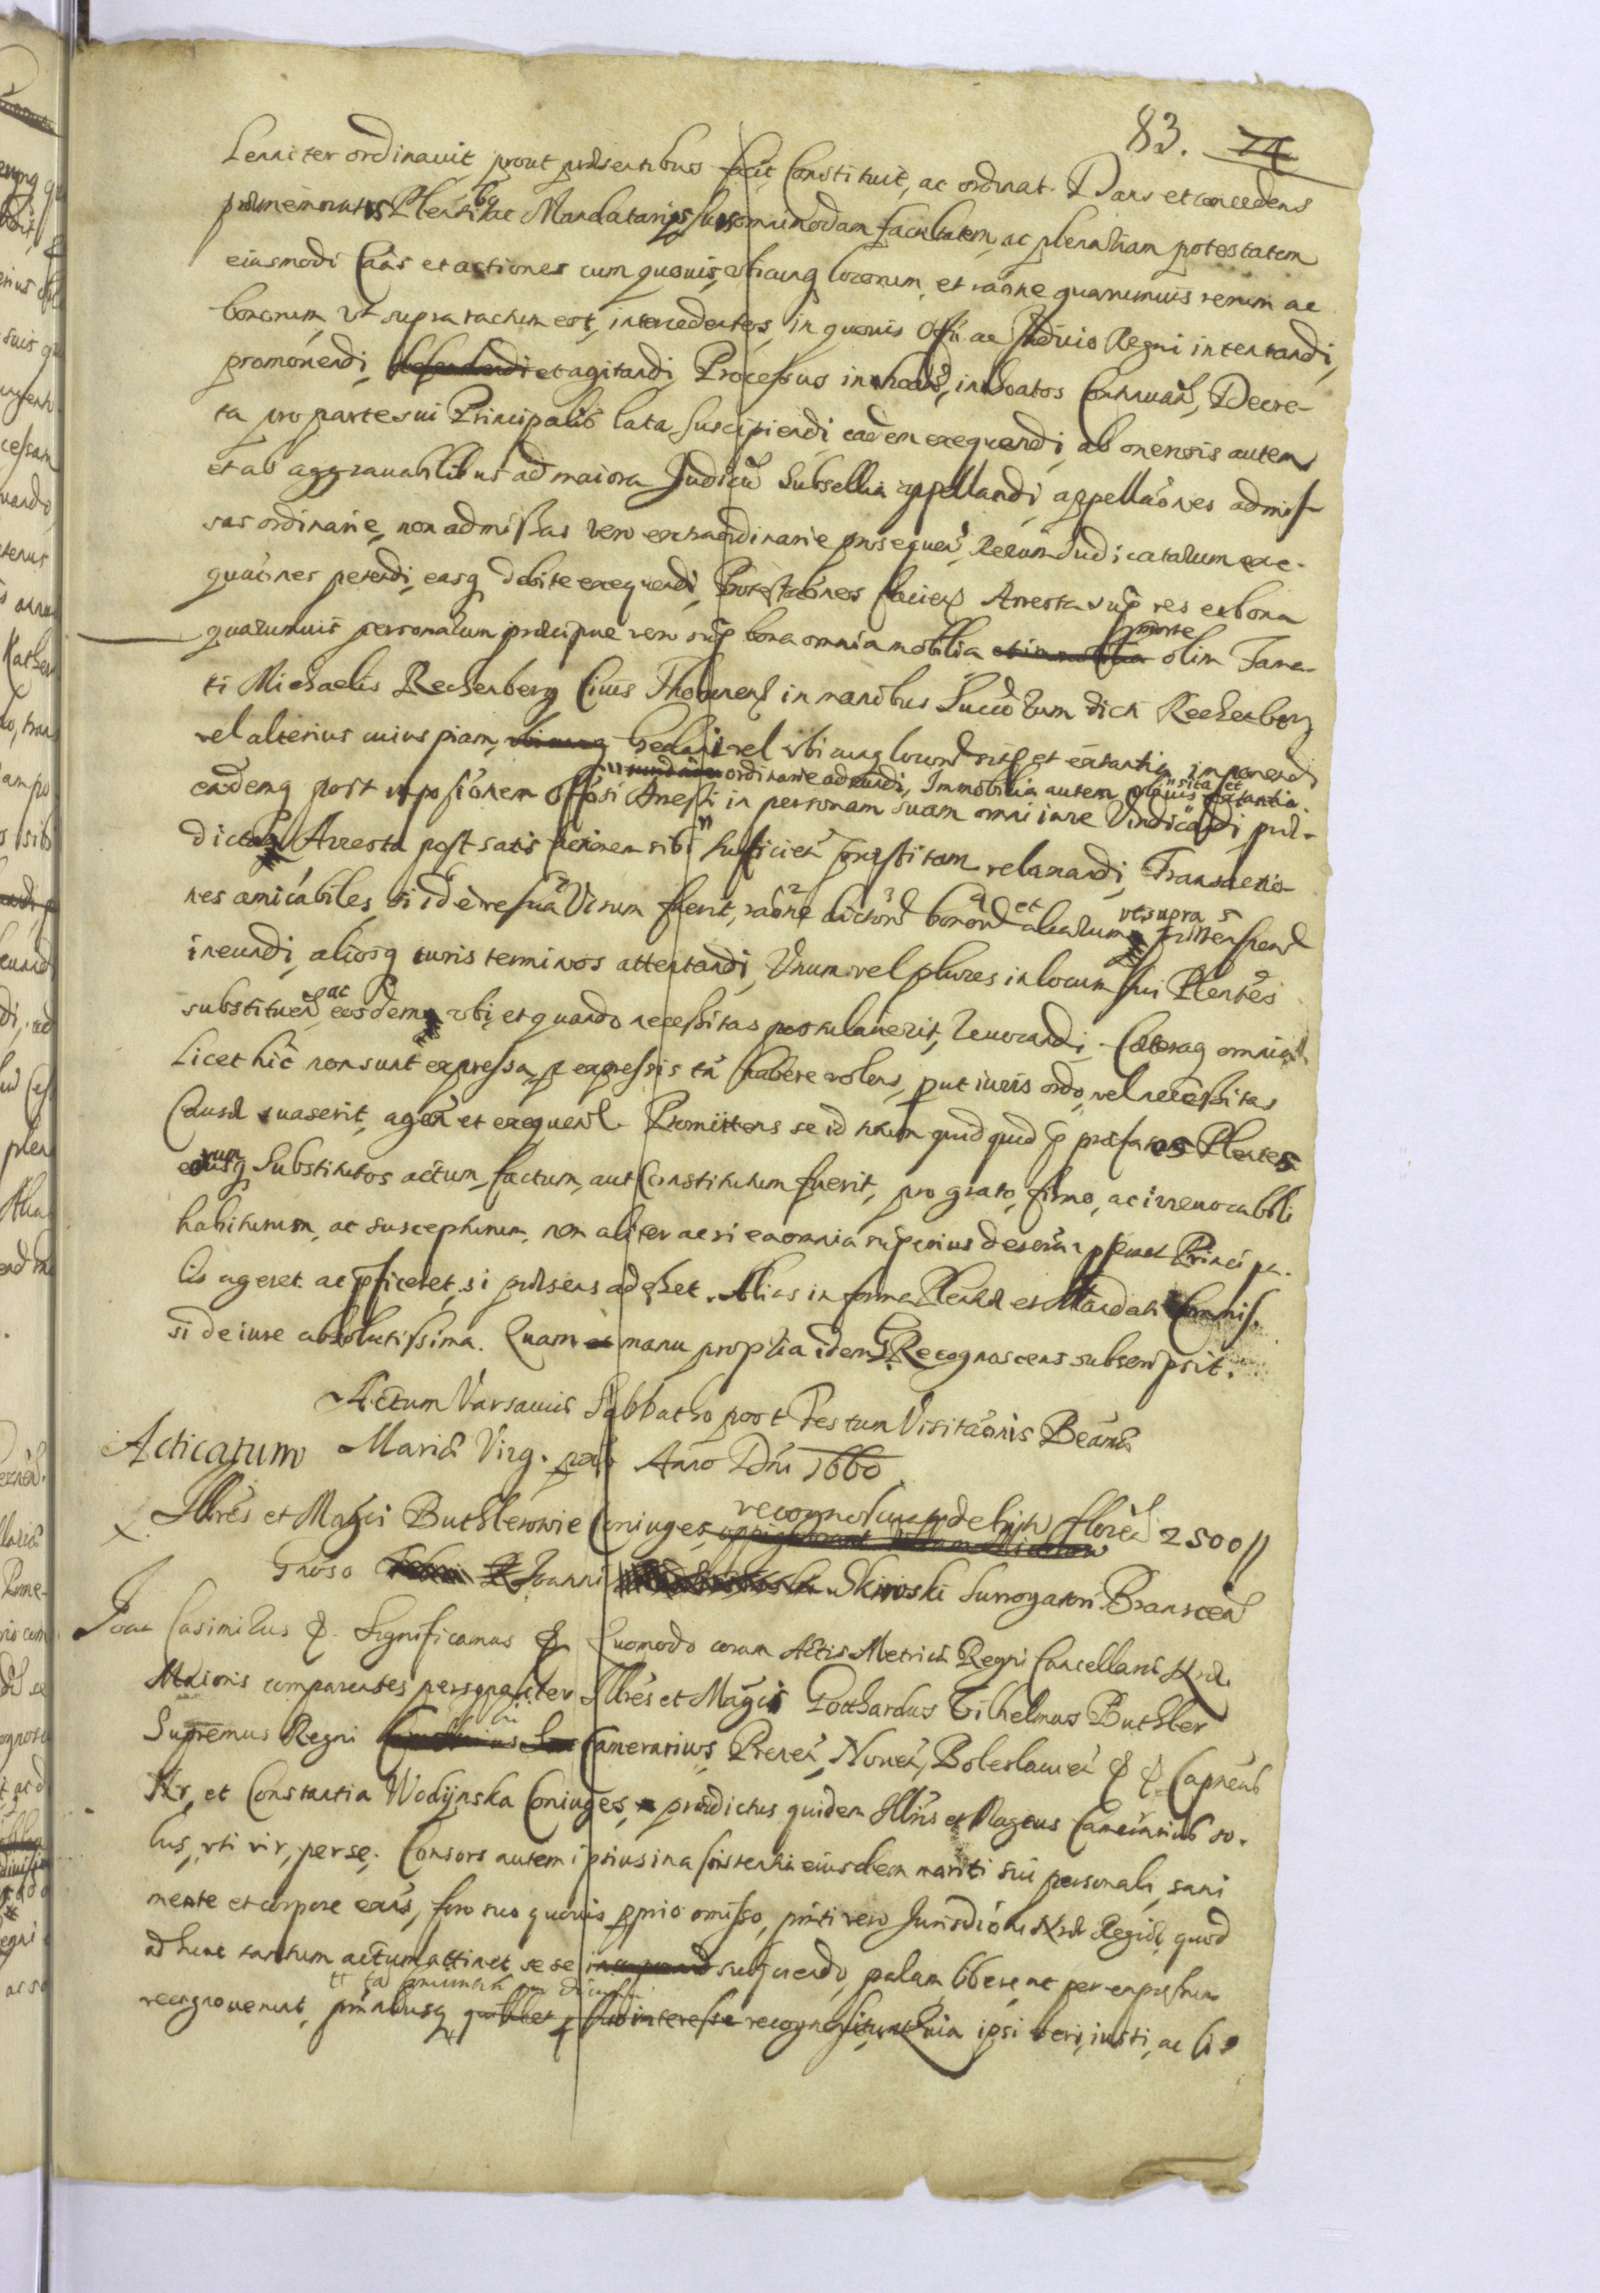 83. 74
lenniter ordinavit, prout præsentibus facit Constituit, ac ordinat. Dans et concedens
præmemoratis Plenti bq ac Mandatarijs suis omnimodam facultatem, ac plenariam potestatem
eiusmodi Cãas et actiones cum quovis, vbicunq locorum, et raõne quarumvis rerum ac
bonorum, vt supra tactum est, intercedentes, in quovis Offo ac Judicio Regni intentandi,
promovendi, defendendi et agitandi, Processus inchoandi, inchoatos Continuand, Decre-
ta pro parte sui Principalis lata suscipiendi eadem exequendi, ab onerosis autem
et ab aggravantibus ad maiora Judicii Subsellia appellandi, appellaõnes admis-
sas ordinarie, non admissas vero extraordinarie prosequen, Rerum Judicatarum exe-
quũones petendi, easq debite exequendi, Protestaõnes faciend Arresta sup res et bona
quarumvis personarum præcipue vero sup bona omnia mobilia et immobilia morte olim Fama-
ti Michaelis Rechenberg Civis Thorunens in manibus Succorum dicti Rechenberg
vel alterius cuiuspiam, vbicunq Gedani vel vbicunq locorum sita et extantia imponendi
eademq post impositionem Offosi Arresti ordinarie adeundi, Immobilia autem quævis sita et extantia
in personam suam omni iure Vindicandi præ-
dictaq Arresta post satisfactionem sibi sufficien præstitam relaxandi, Transactio-
nes amicabiles, si id è re sua Visum fuerit, raõne dictorum bonorum et aliarum vt supra
ineundi, aliosq iuris terminos attentandi, Vnum vel plures in locum sui Plentes
substituend ac eosdemq vbi et quando necessitas postulaverit, revocandi. Cæteraq omnia
licet hic non sunt expressa, p expressis tñ habere volens, put iuris ordo, vel necessitas
Causæ suaserit, agen et exequend. Promittens se id totum quidquid p præfatos Plentes
eorumq Substitutos actum, factum, aut Constitutum fuerit, pro grato, firmo, ac irrevocabili
habiturum, ac suscepturum, non aliter ac si ea omnia superius descripta ipsemet Principa-
lis ageret ac pficeret, si præsens adesset. Alias in forma Plentiæ et Mandati Commis-
si de iure absolutissima. Quam et manu propria idem G. Recognoscens subscripsit.
Actum Varsaviæ Sabbatho post Festum Visitaõnis Beatmæ
Acticatum Mariæ Virg. pxo Anno Dni 1660
Illres et Magci Buthlerowie Coniuges, recognoscunt debitum floren 2500
Groso Joanni Skiwski Surrogatori Branscen
Joan Casimirus &. Significamus & Quomodo coram Actis Metrices Regni Cancellariæ Nræ
Maioris comparentes personaliter Illres et Magci Gotthardus Wilhelmus Buthler
Supremus Regni Camerarius, Prenen, Noven, Boleslavien & & Capneus
Nr, et Constantia Wodynska Coniuges, prædictus quidem Illris et Magcus Camerarius so-
lus, vti vir, per se. Consors autem ipsius in assistentia eiusdem mariti sui personali, sani
mente et corpore exns, foro suo quovis pprio omisso, pnti vero Jurisdiõni Nræ Regiæ, quod
ad hunc tantum actum attinet se se subjciendo, palam libere, ac per expressum
recognoverunt, pntibusq quilibet suo interesse recognoscunt Quia ipsi veri, iusti, ac li